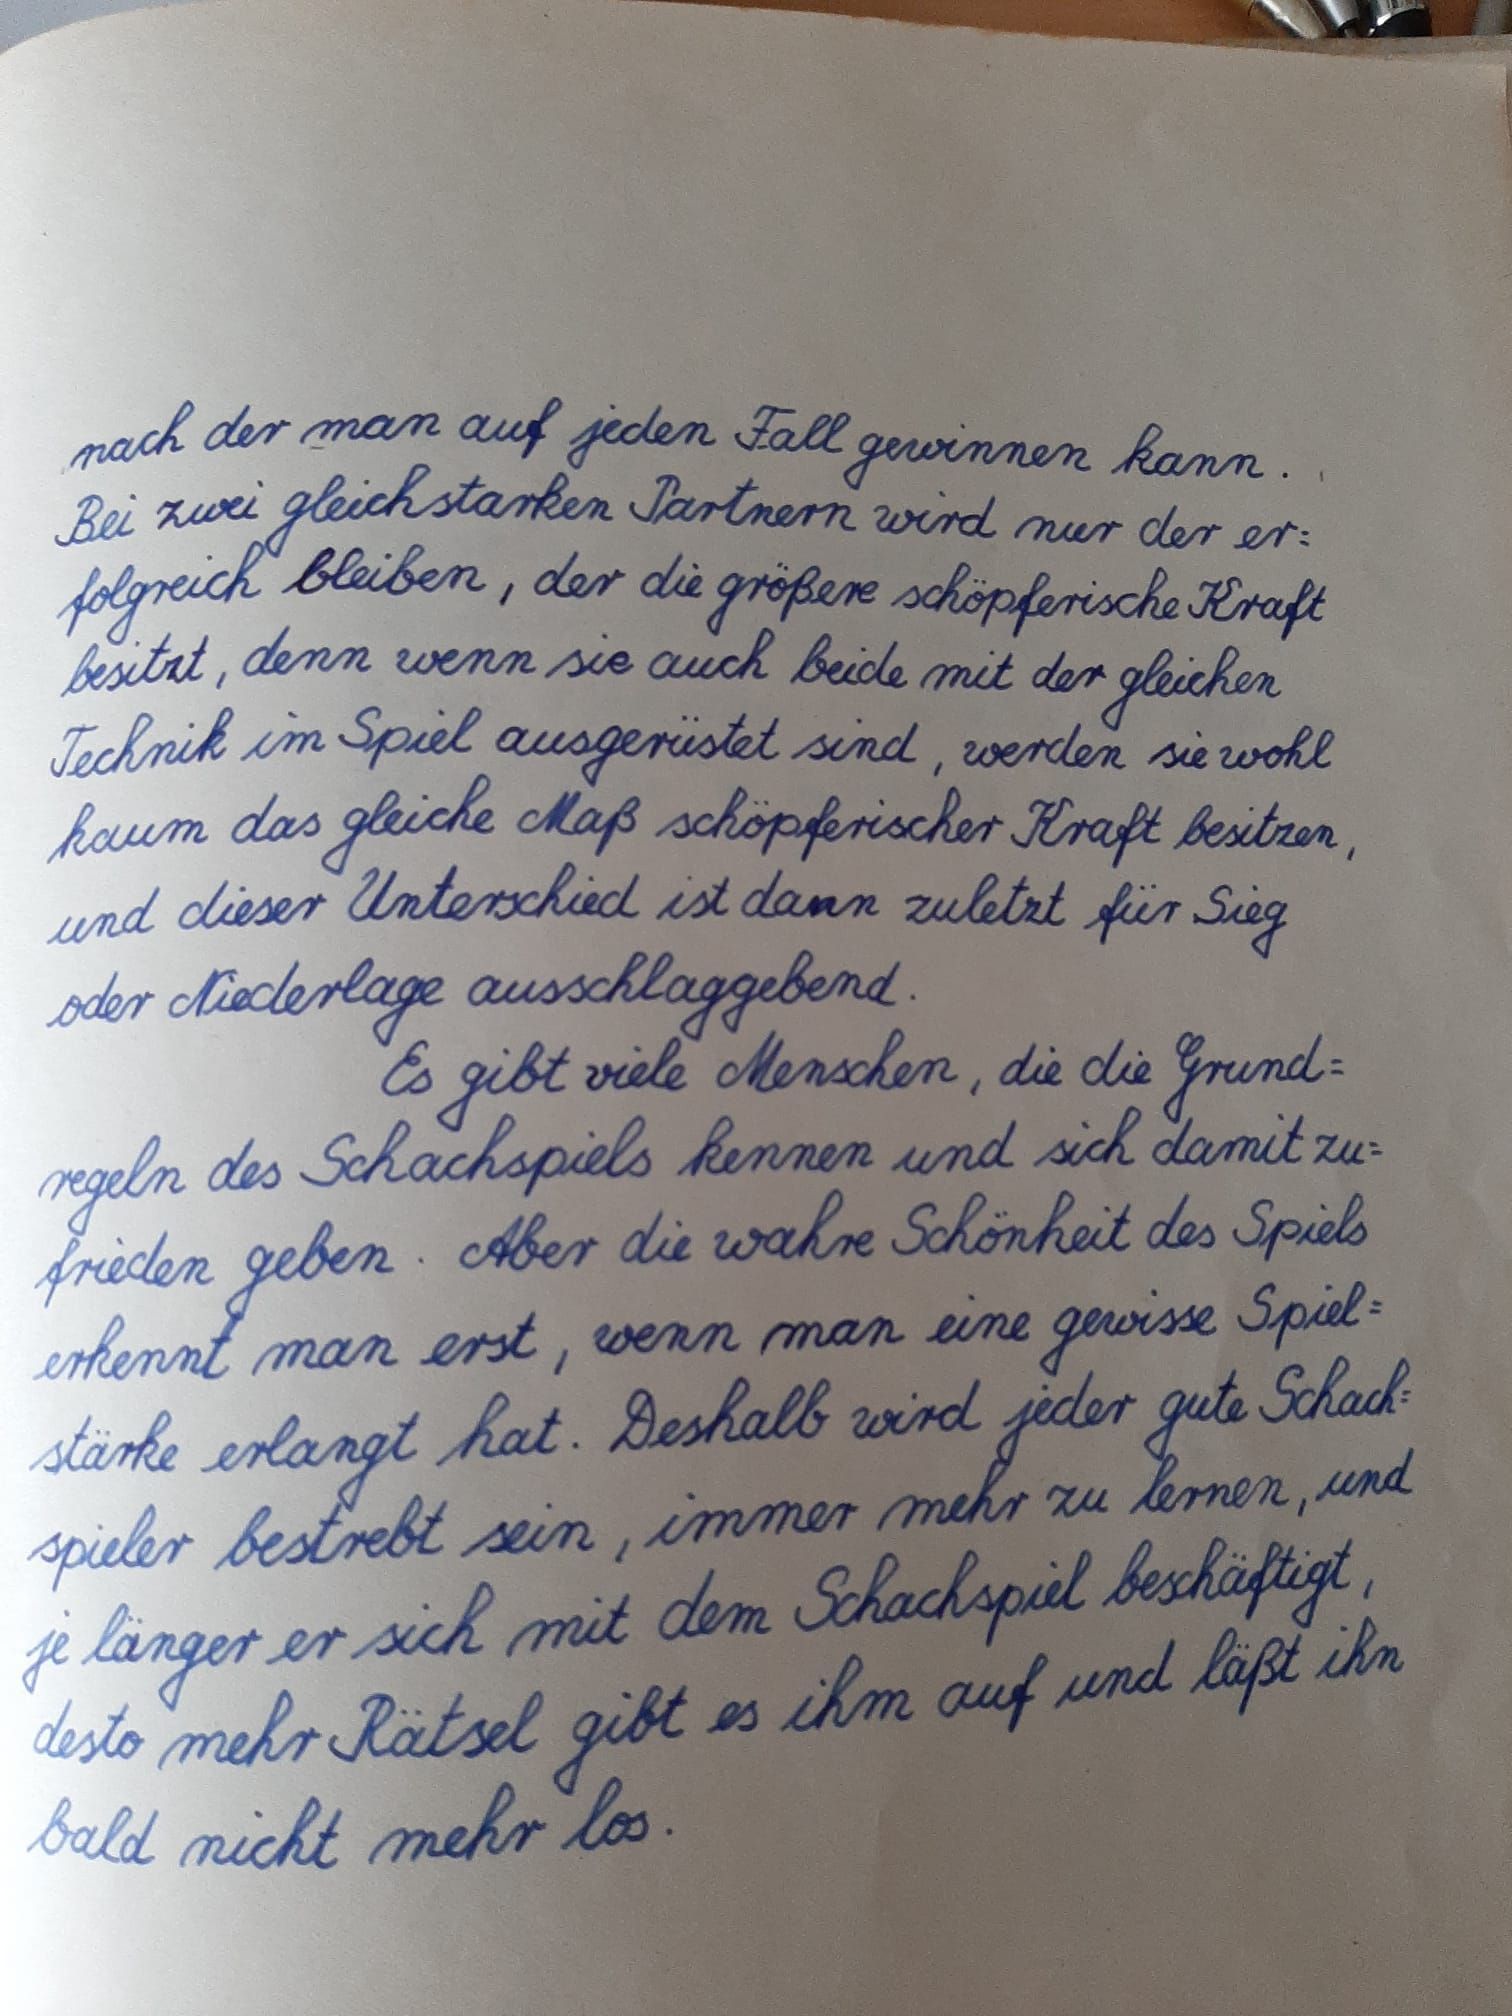 nach der man auf jeden Fall gewinnen kann.
Bei zwei gleichstarken Partnern wird nur der er=
folgreich bleiben, der die größere schöpferische Kraft
besitzt, denn wenn sie auch beide mit der gleichen
Technik im Spiel ausgerüstet sind, werden sie wohl
kaum das gleiche Maß schöpferischer Kraft besitzen,
und dieser Unterschied ist dann zuletzt für Sieg
oder Niederlage ausschlaggebend.
Es gibt viele Menschen, die die Grund=
regeln des Schachspiels kennen und sich damit zu=
frieden geben. Aber die wahre Schönheit des Spiels
erkennt man erst, wenn man eine gewisse Spiel=
stärke erlangt hat. Deshalb wird jeder gute Schach=
spieler bestrebt sein, immer mehr zu lernen, und
je länger er sich mit dem Schachspiel beschäftigt,
desto mehr Rätsel gibt es ihm auf und läßt ihn
bald nicht mehr los.